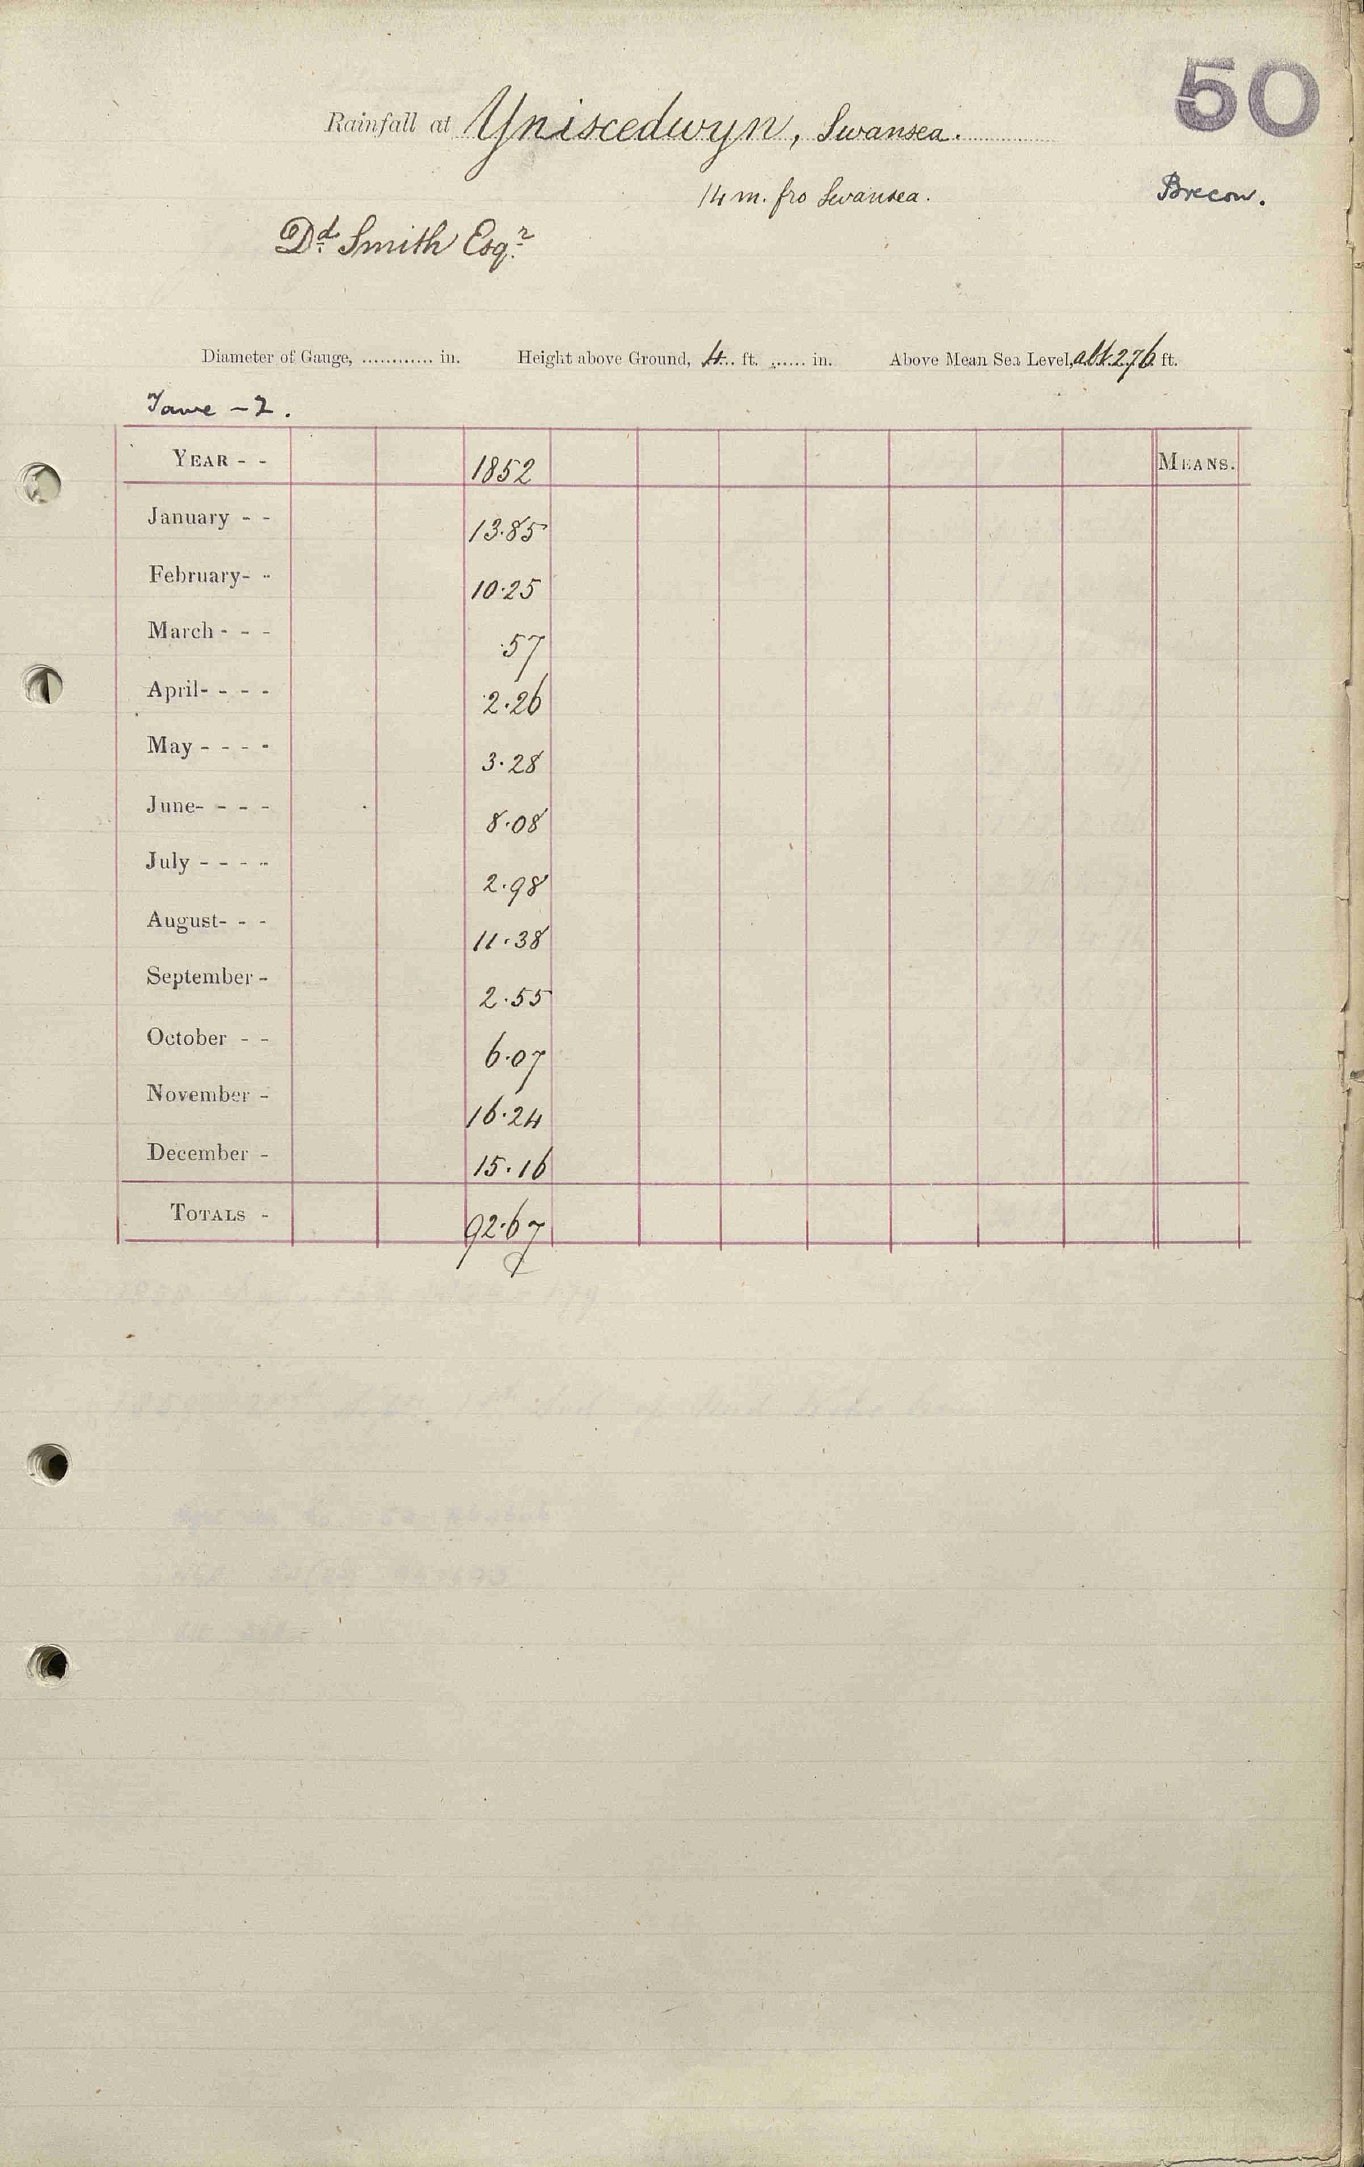 50
Rainfall at Yniscedwyn, Swansea.
14 m. fro Swansea.
Brecon.
Dd. Smith Esqr.
Diameter of Gauge, ............ in. Height above Ground, 4 ft. ...... in. Above Mean Sea Level, abt. 276 ft.
Tawe - 2.
YEAR - - 1852 MEANS.
January - - 13.85
February - - 10.25
March - - - .57
April - - - - 2.26
May - - - - 3.28
June - - - - 8.08
July - - - - 2.98
August - - - 11.38
September - 2.55
October - - 6.07
November - 16.24
December - 15.16
TOTALS - 92.67